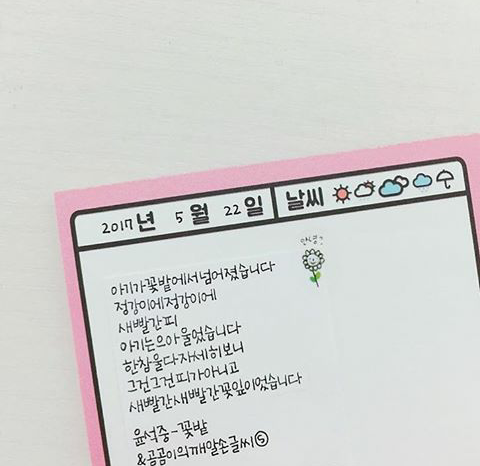 2017년 5월 22일 날씨
안녕?
아기가꽃밭에서넘어졌습니다
정강이에정강이에
새빨간피
아기는으아울었습니다
한참울다자세히보니
그건그건피가아니고
새빨간새빨간꽃잎이었습니다
윤석중-꽃밭
&곰곰이의깨알손글씨⑤